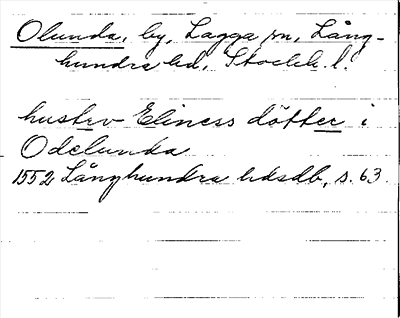 Olunda, by, Lagga sn, Lång-
hundra hd, Stockh. l.
hustrv Eliness dötter i
Odelunda
1552 Långhundra hdsdb, s. 63.